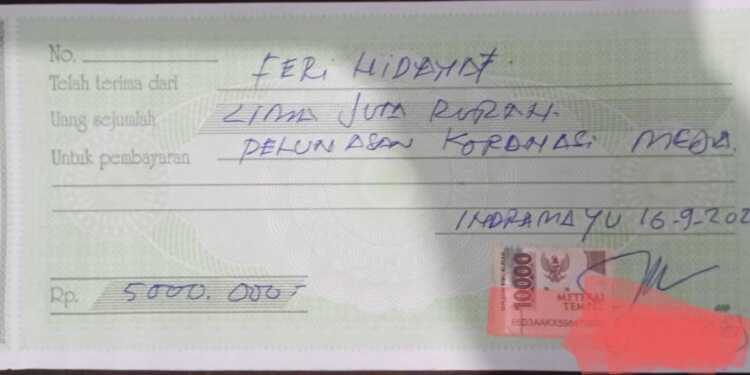 No.
Telah terima dari FERI HIDAYAT
Uang sejumlah LIMA JUTA RUPIAH
Untuk pembayaran PELUNASAN KORDNASI MEDIA.
INDRAMAYU 16-9-202
10000
METERAI
TEMPEL
Rp. 5000.000,-